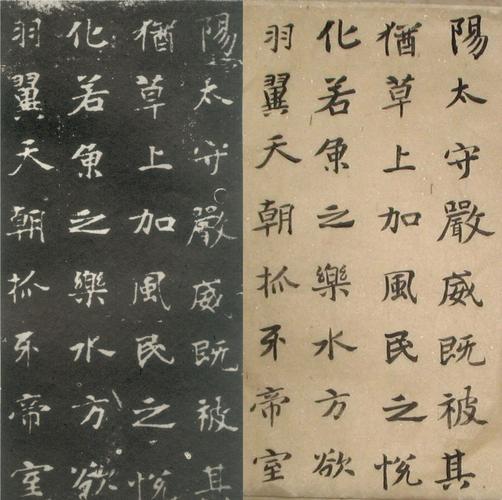 陽太守嚴威既被其
猶草上加風民之悅
化若魚之樂水方欲
羽翼天朝抓牙帝室
陽太守嚴威既被其
猶草上加風民之悅
化若魚之樂水方欲
羽翼天朝抓牙帝室